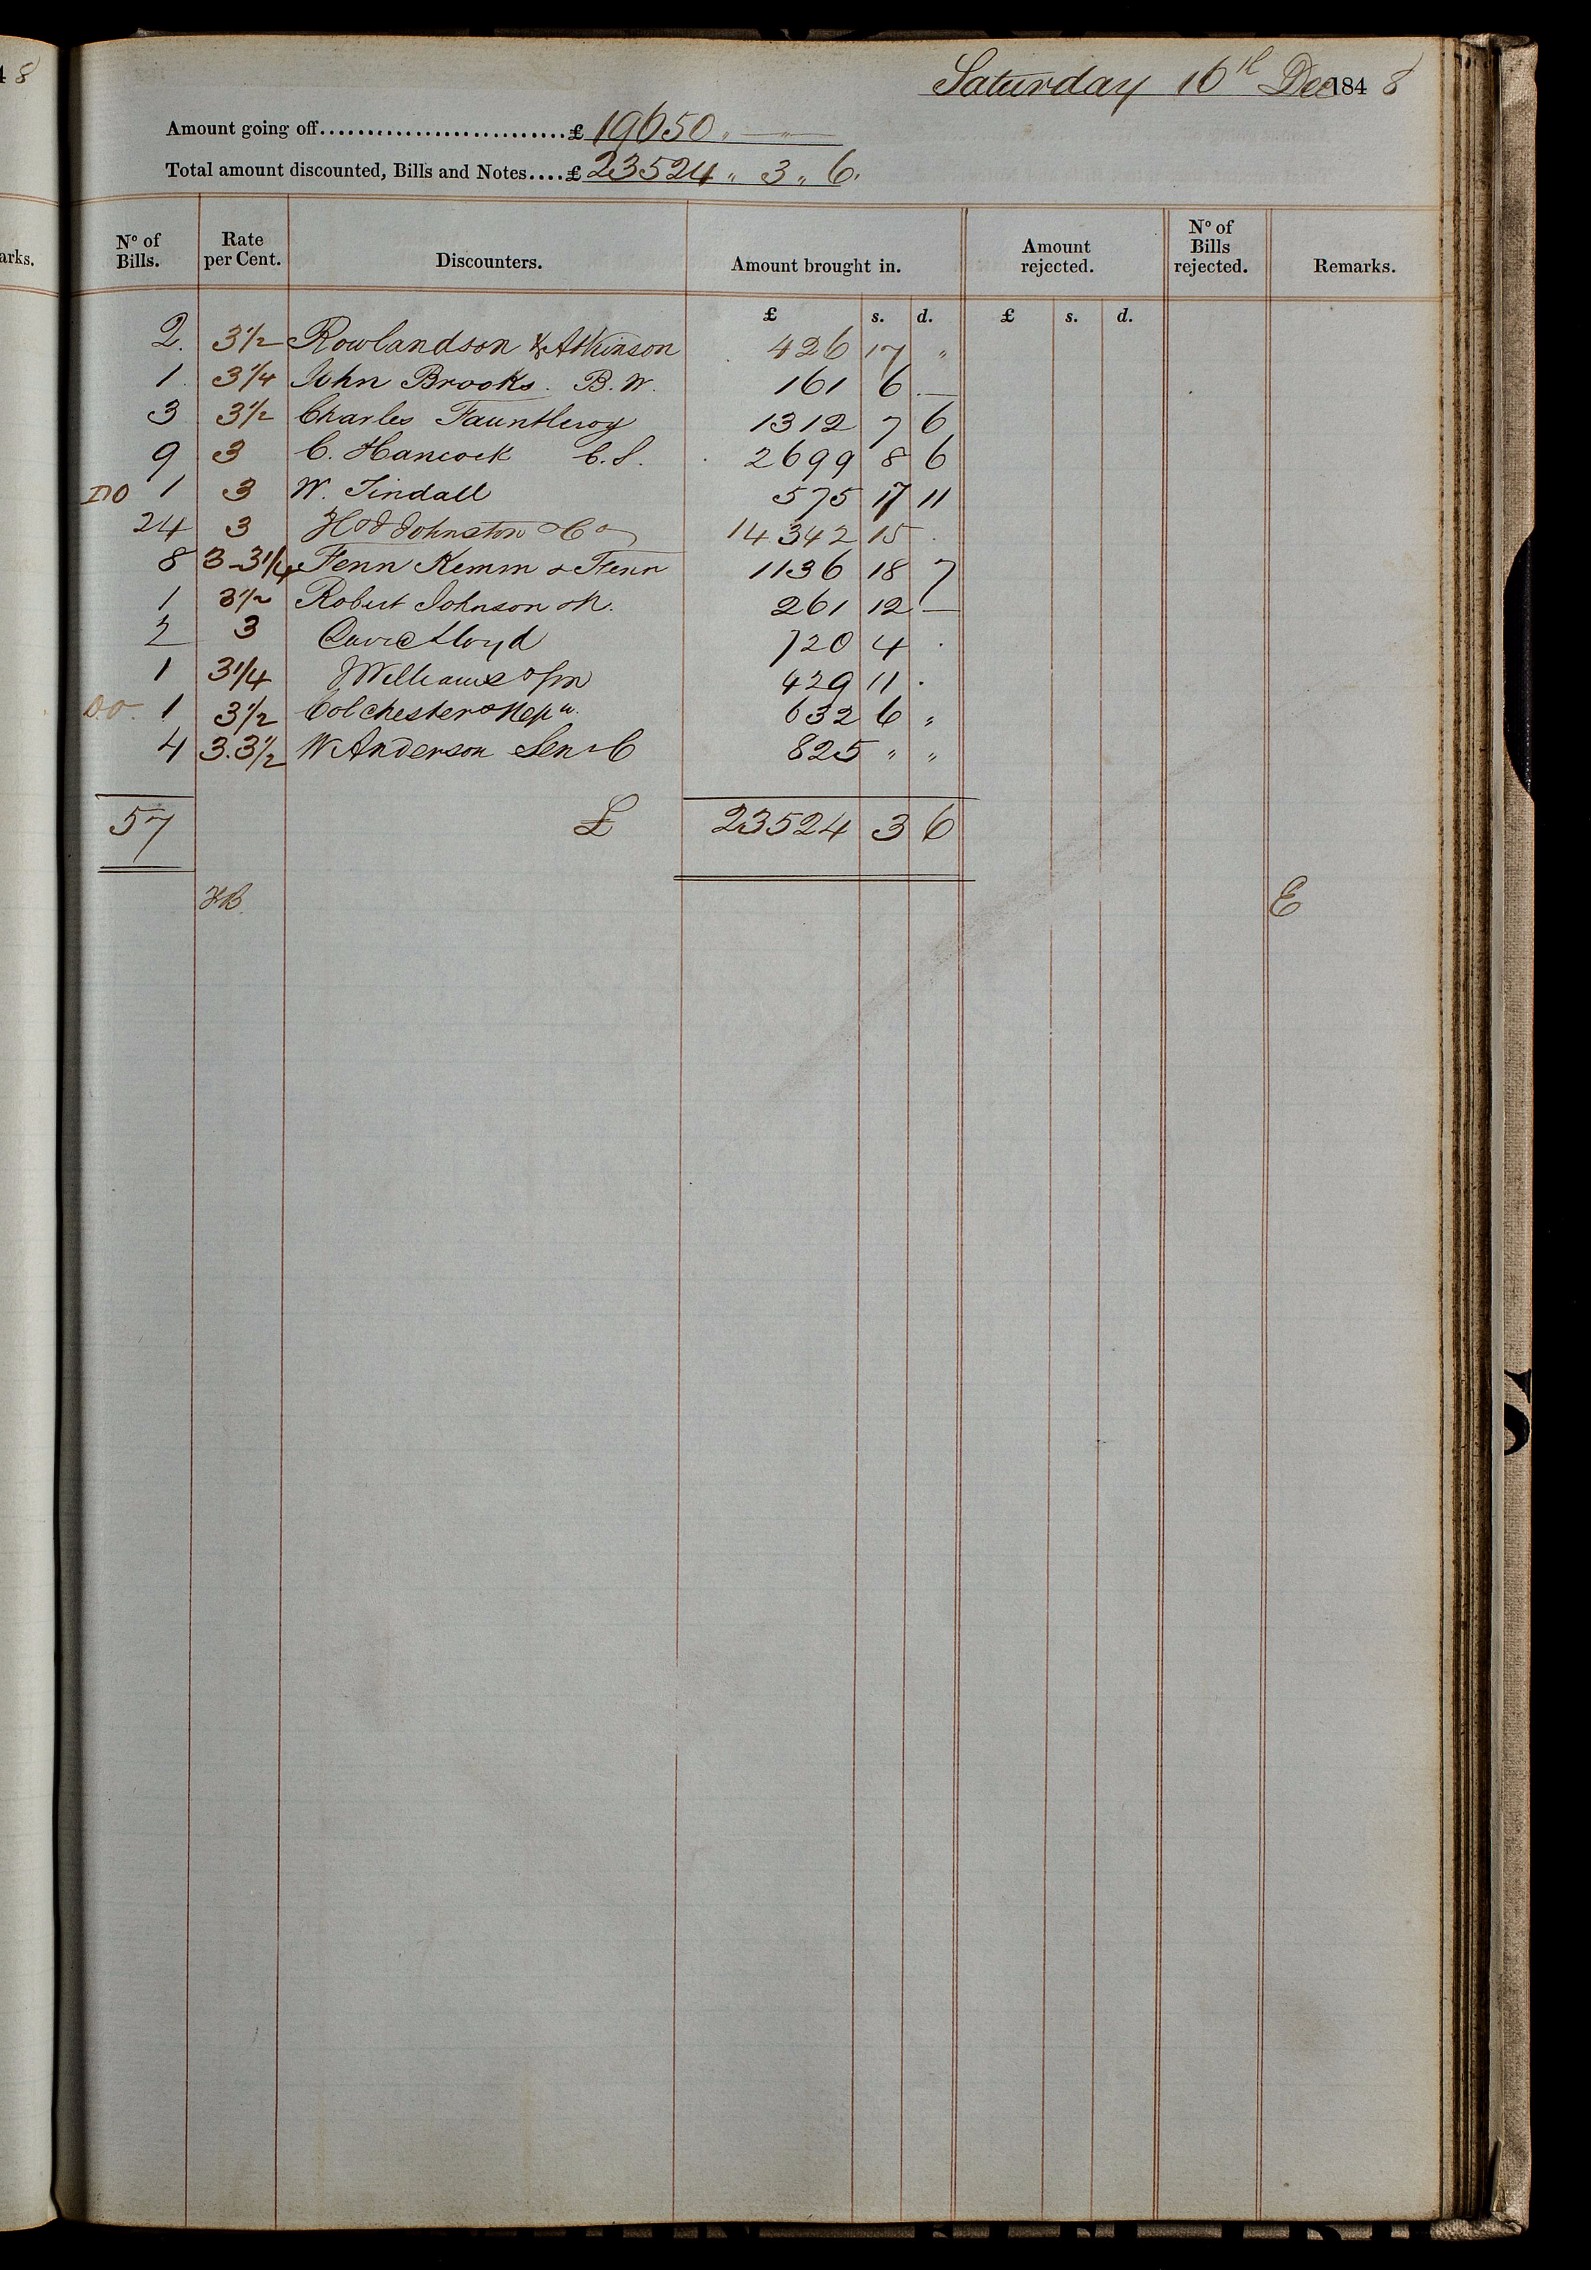 4 8
Saturday 16th Dec 184 8
Amount going off..........................£ 19650 " — " —
Total amount discounted, Bills and Notes....£ 23524 " 3 " 6.
arks.
No of Bills. Rate per Cent. Discounters. Amount brought in. Amount rejected. No of Bills rejected. Remarks.
£ s. d. £ s. d.
2. 3½ Rowlandson & Atkinson 426 17 "
1. 3¼ John Brooks. B. W. 161 6 —
3 3½ Charles Fauntleroy 1312 7 6
9 3 C. Hancock C. S. 2699 8 6
DO 1 3 W. Tindall 575 17 11
24 3 H & J Johnston & Co 14342 15 .
8 3-3¼ Fenn Kemm & Fenn 1136 18 7
1 3½ Robert Johnson 261 12 —
2 3 David Lloyd 720 4 .
1 3¼ J Williams & Son 429 11 .
D.O. 1 3½ Colchester & 632 6 "
4 3.3½ W Anderson Sen & C 825 " "
57 £ 23524 3 6
HB E